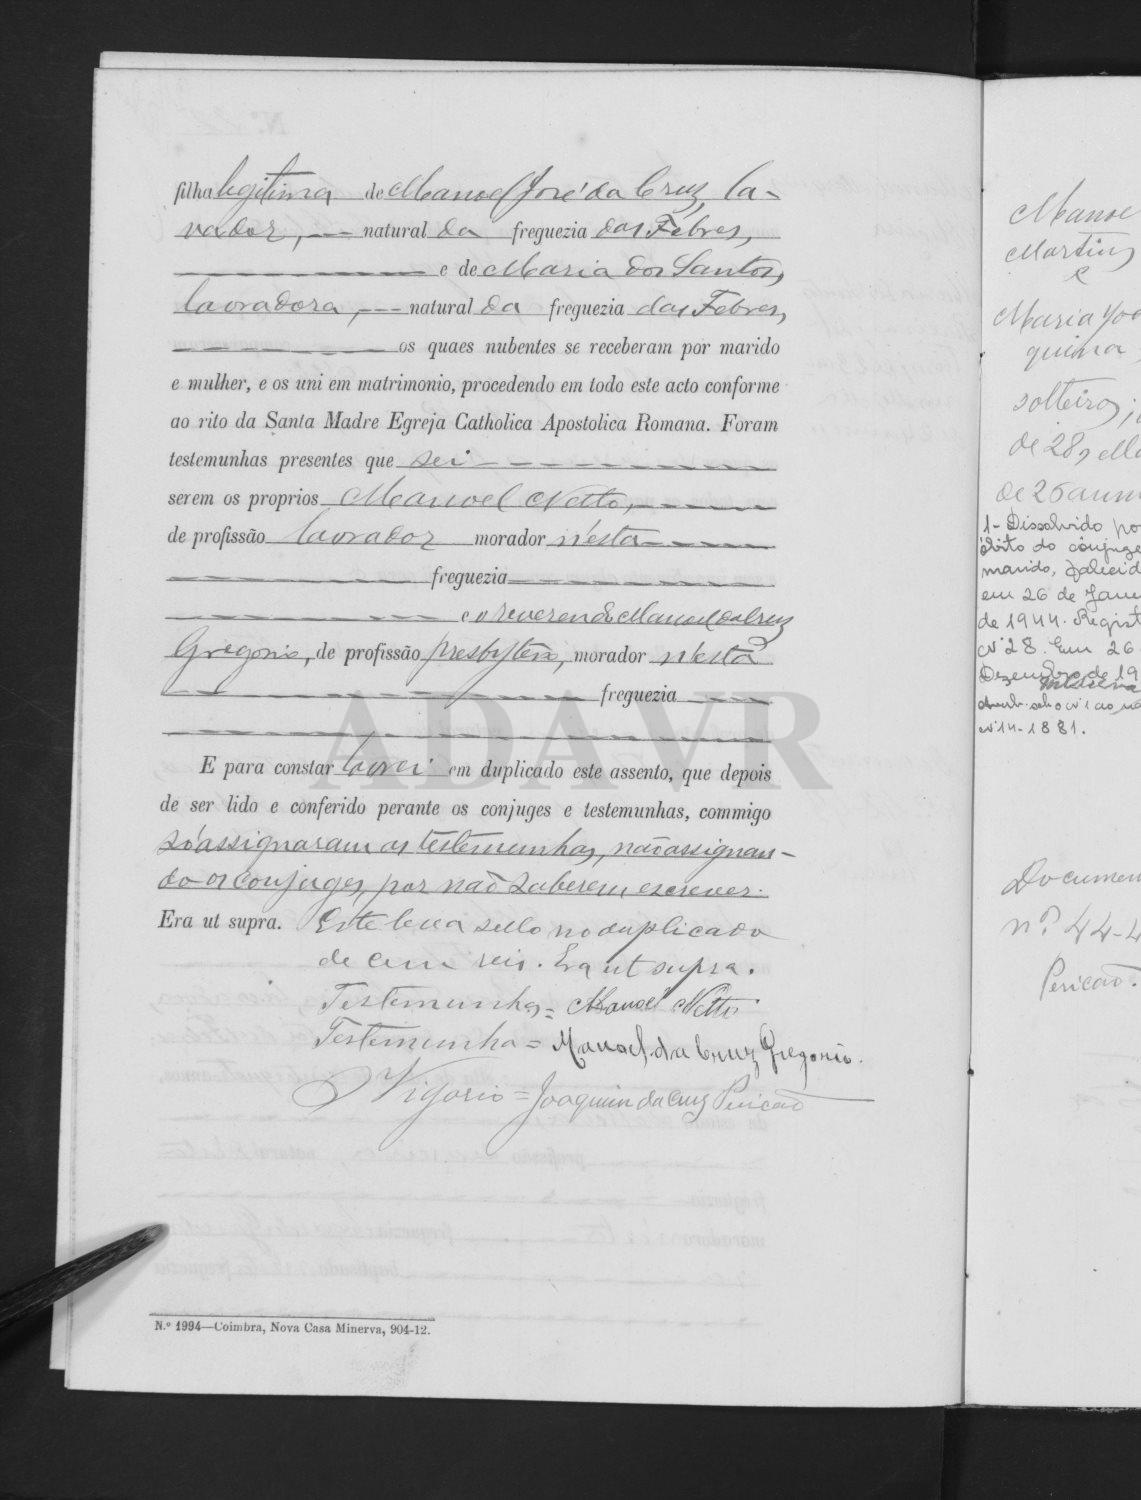 filha legitima de Manoel José da Cruz, la-
vrador, natural da freguezia das Febres,
e de Maria dos Santos,
lavradora, natural da freguezia das Febres,
os quaes nubentes se receberam por marido
e mulher, e os uni em matrimonio, procedendo em todo este acto conforme
ao rito da Santa Madre Egreja Catholica Apostolica Romana. Foram
testemunhas presentes que sei
serem os proprios Manoel Netto,
de profissão lavrador morador n'esta
freguezia
e o reverendo Manoel da Cruz
Gregorio, de profissão presbytero, morador n'esta
freguezia
E para constar lavrei em duplicado este assento, que depois
de ser lido e conferido perante os conjuges e testemunhas, commigo
só assignaram as testemunhas, não assignan-
do os conjuges, por não saberem escrever.
Era ut supra. Este leva sello no duplicado
de cem reis. Era ut supra.
Testemunha = Manoel Netto
Testemunha = Manoel da Cruz Gregorio.
O Vigario = Joaquim da Cruz Pericão
N.º 1994—Coimbra, Nova Casa Minerva, 904-12.
ADAVR
Manoe
Martins
e
Maria Joa
quina
solteiros;
de 28, ella
de 26 ann
1- Dissolvido po
óbito do cônjuge
marido, falecid
em 26 de Janei
de 1944. Regist
Nº 28. Em 26
Dezembro de 19
averb. sob o nº 1 ao
nº 14-1881.
Documen
n.º 44-4
Pericão.